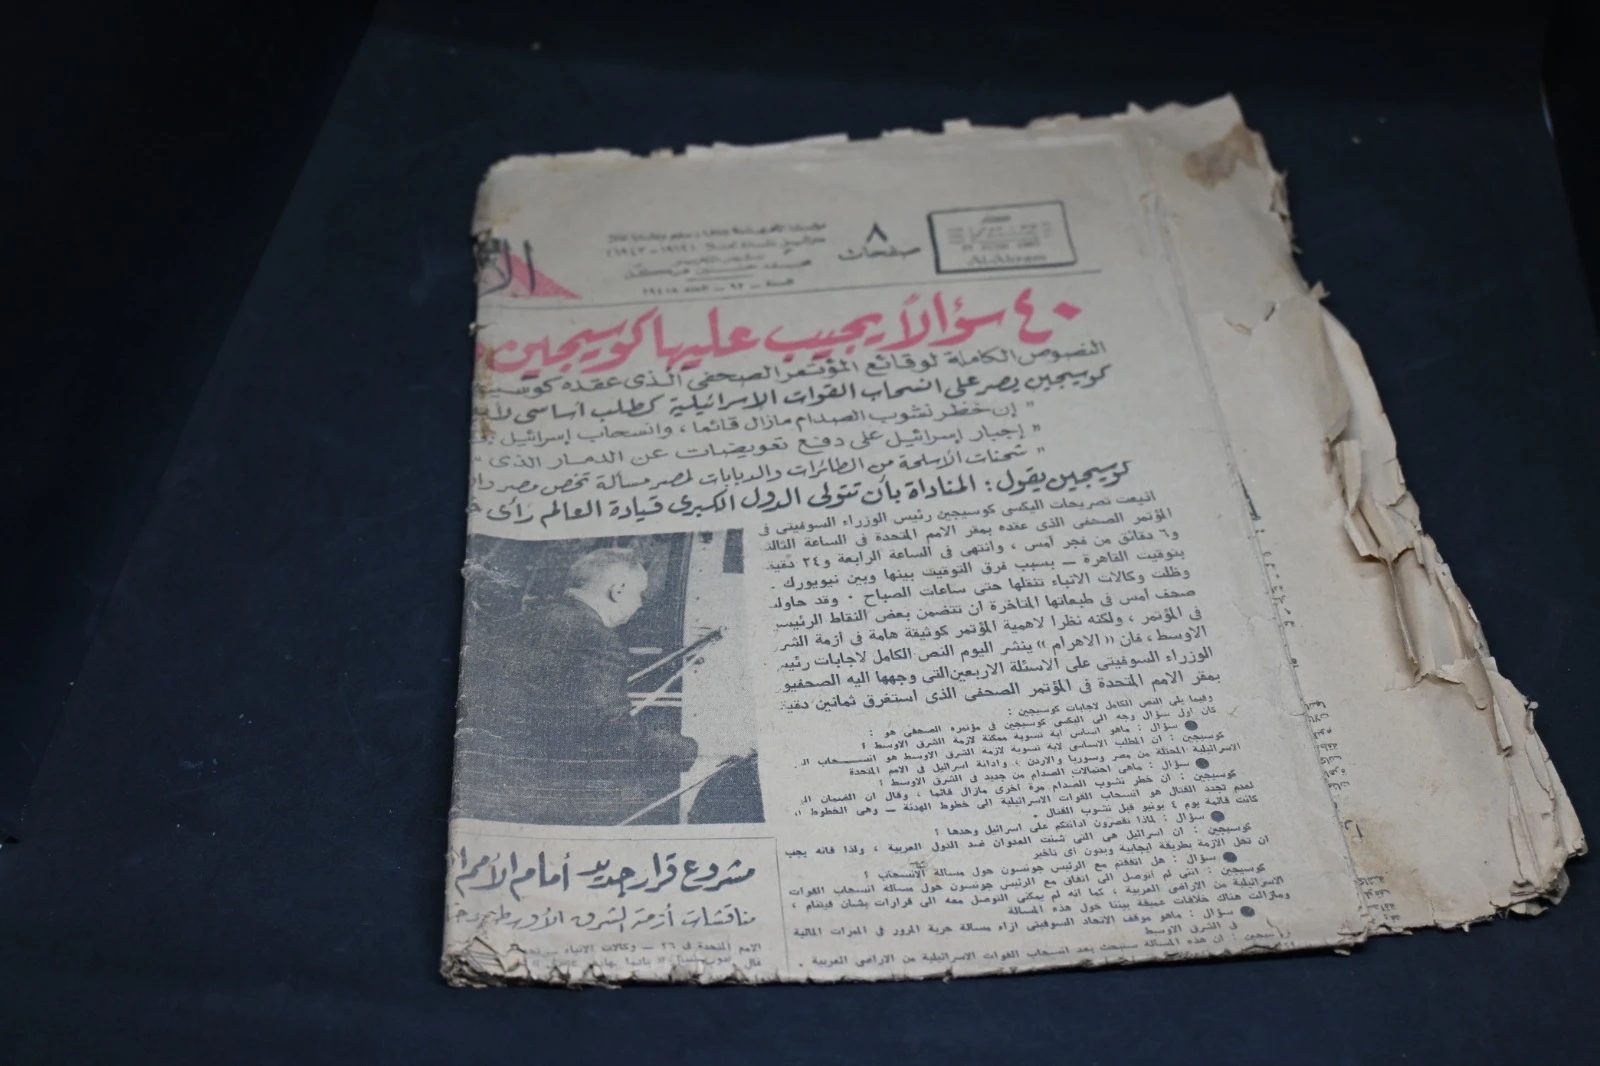 Al-Ahram
٨
صفحات
السنة - ٩٣ - العدد ٢٩٤١٨
٤٠ سؤالاً يجيب عليها كوسيجين
النصوص الكاملة لوقائع المؤتمر الصحفى الذى عقده كوسيج
كوسيجين يصر على انسحاب القوات الاسرائيلية كطلب أساسى
" إن خطر نشوب الصدام مازال قائما ، وانسحاب إسرائيل
" إجبار إسرائيل على دفع تعويضات عن الدمار الذى
" شحنات الاسلحة من الطائرات والدبابات لمصر مسألة تخص مصر
كوسيجين يقول : المناداة بأن تتولى الدول الكبرى قيادة العالم رأى
اذيعت تصريحات اليكسى كوسيجين رئيس الوزراء السوفيتى فى
المؤتمر الصحفى الذى عقده بمقر الامم المتحدة فى الساعة الثالث
و٦ دقائق من فجر أمس ، وانتهى فى الساعة الرابعة و٢٤ دقيقة
بتوقيت القاهرة – بسبب فرق التوقيت بينها وبين نيويورك .
وظلت وكالات الانباء تنقلها حتى ساعات الصباح . وقد حاولت
صحف أمس فى طبعاتها المتاخرة ان تتضمن بعض النقاط الرئيس
فى المؤتمر ، ولكنه نظرا لاهمية المؤتمر كوثيقة هامة فى أزمة الشر
الاوسط ، فان « الاهرام » ينشر اليوم النص الكامل لاجابات رئيس
الوزراء السوفيتى على الاسئلة الاربعين التى وجهها اليه الصحفيو
بمقر الامم المتحدة فى المؤتمر الصحفى الذى استغرق ثمانين دقيق
وفيما يلى النص الكامل لاجابات كوسيجين :
كان اول سؤال وجه الى اليكسى كوسيجين فى مؤتمره الصحفى هو :
● سؤال : ماهو اساس اية تسوية ممكنة لازمة الشرق الاوسط ؟
كوسيجين : ان المطلب الاساسى لاية تسوية لازمة الشرق الاوسط هو انسحاب ال
الاسرائيلية المحتلة من مصر وسوريا والاردن ، وادانة اسرائيل فى الامم المتحدة
● سؤال : ماهى احتمالات الصدام من جديد فى الشرق الاوسط ؟
كوسيجين : ان خطر نشوب الصدام مرة اخرى مازال قائما ، وقال ان الضمان ال
لعدم تجدد القتال هو انسحاب القوات الاسرائيلية الى خطوط الهدنة – وهى الخطوط ال
كانت قائمة يوم ٤ يونيو قبل نشوب القتال .
● سؤال : لماذا تقصرون ادانتكم على اسرائيل وحدها ؟
كوسيجين : ان اسرائيل هى التى شنت العدوان ضد الدول العربية ، ولذا فانه يجب
ان تحل الازمة بطريقة ايجابية وبدون أى تاخير
● سؤال : هل اتفقتم مع الرئيس جونسون حول مسالة الانسحاب ؟
كوسيجين : اننى لم اتوصل الى اتفاق مع الرئيس جونسون حول مسالة انسحاب القوات
الاسرائيلية من الاراضى العربية ، كما انه لم يمكنى التوصل معه الى قرارات بشان فيتنام ،
ومازالت هناك خلافات عميقة بيننا حول هذه المسالة
● سؤال : ماهو موقف الاتحاد السوفيتى ازاء مسالة حرية المرور فى الممرات المائية
فى الشرق الاوسط
كوسيجين : ان هذه المسالة ستبحث بعد انسحاب القوات الاسرائيلية من الاراضى العربية .
مشروع قرار جديد أمام الأمم ا
مناقشات أزمة الشرق الأوسط
الامم المتحدة فى ٢٦ – وكالات الانباء